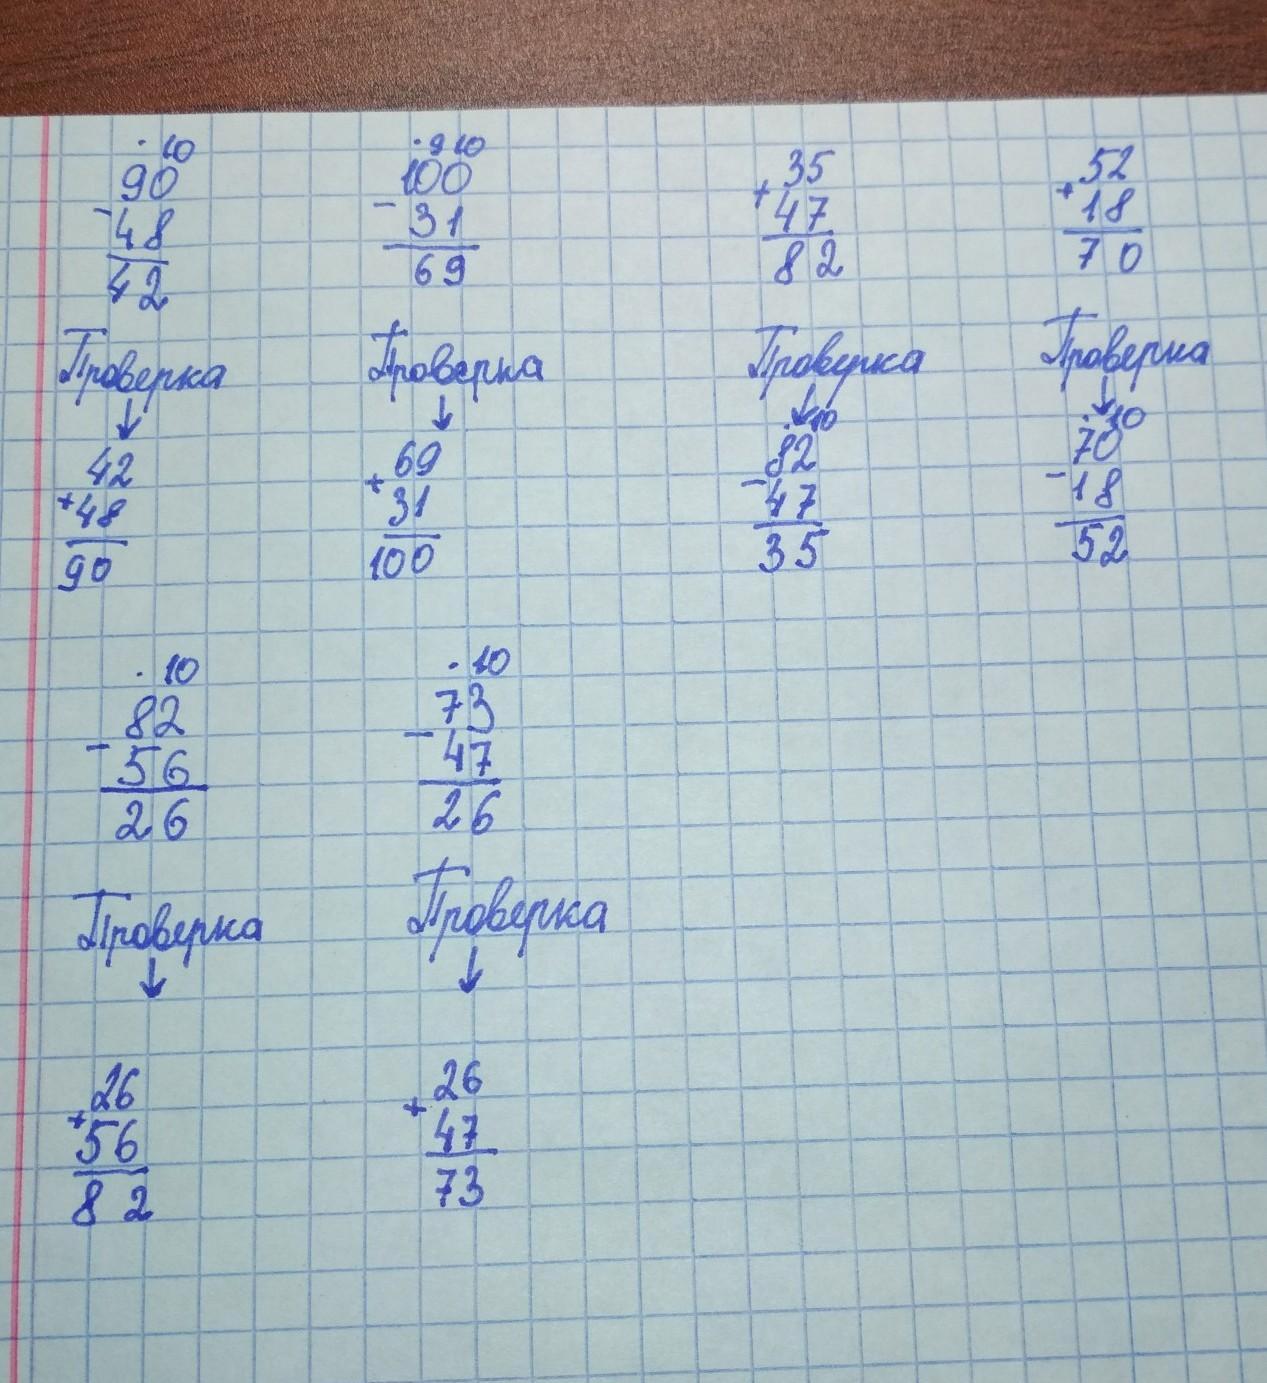 · 10
90
- 48
42
Проверка
↓
42
+ 48
90
· 9 10
100
- 31
69
Проверка
↓
69
+ 31
100
35
+ 47
82
Проверка
↓
· 10
82
- 47
35
52
+ 18
70
Проверка
↓
· 10
70
- 18
52
· 10
82
- 56
26
Проверка
↓
26
+ 56
82
· 10
73
- 47
26
Проверка
↓
26
+ 47
73